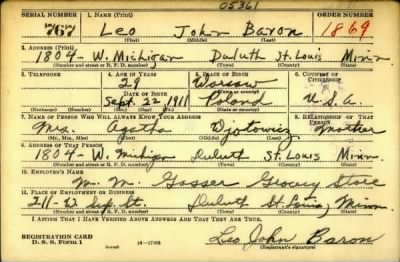 05361
SERIAL NUMBER 1. NAME (Print) ORDER NUMBER
767 Leo John Baron 1869
(First) (Middle) (Last)
2. ADDRESS (Print)
1804 - W. Michigan Duluth St. Louis Minn
(Number and street or R. F. D. number) (Town) (County) (State)
3. TELEPHONE 4. AGE IN YEARS 5. PLACE OF BIRTH 6. COUNTRY OF CITIZENSHIP
29 Warsaw
DATE OF BIRTH (Town or county)
Sept. 22 1911 Poland U.S.A.
(Exchange) (Number) (Mo.) (Day) (Yr.) (State or country)
7. NAME OF PERSON WHO WILL ALWAYS KNOW YOUR ADDRESS 8. RELATIONSHIP OF THAT PERSON
Mrs. Agatha Mother
(Mr., Mrs., Miss) (First) (Middle) (Last)
9. ADDRESS OF THAT PERSON
1804 - W. Michigan Duluth St. Louis Minn.
(Number and street or R. F. D. number) (Town) (County) (State)
10. EMPLOYER'S NAME
M. M. Gasser Grocery Store
11. PLACE OF EMPLOYMENT OR BUSINESS
Sup. St. Duluth St. Louis, Minn
(Number and street or R. F. D. number) (Town) (County) (State)
I AFFIRM THAT I HAVE VERIFIED ABOVE ANSWERS AND THAT THEY ARE TRUE.
REGISTRATION CARD
D. S. S. Form 1 Leo John Baron
(Registrant's signature)